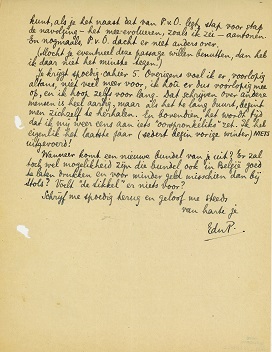 kunt, als je het naast dat van P.v.O. legt, stap voor stap
de navolging – het mee-evolueeren, zoals ik zei – aantoonen.
En nogmaals, P.v.O. dacht er niet anders over.
(Mocht je eventueel deze passage willen benutten, dan heb
ik daar niet het minste tegen.)
Je krijgt spoedig cahier 5. Overigens voel ik er, voorloopig
althans, niet veel meer voor, ik hou er dus voorloopig mee
op, en ik hoop zelfs voor lang. Dat schrijven over andere
menschen is heel aardig, maar als het te lang duurt, begint
men zichzelf te herhalen. En bovendien het wordt tijd
dat ik mij weer eens aan iets "oorspronkelijks" zet. Ik heb
eigenlijk het laatste jaar (sedert begin vorige winter) NIETS
uitgevoerd!
Wanneer komt een nieuwe bundel van je uit? Er zal
toch wel mogelijkheid zijn die bundel ook in België goed
te laten drukken en voor minder geld misschien dan bij
Stols? Voelt "de Sikkel" er niets voor?
Schrijf me spoedig terug en geloof me steeds
van harte je
EduP.